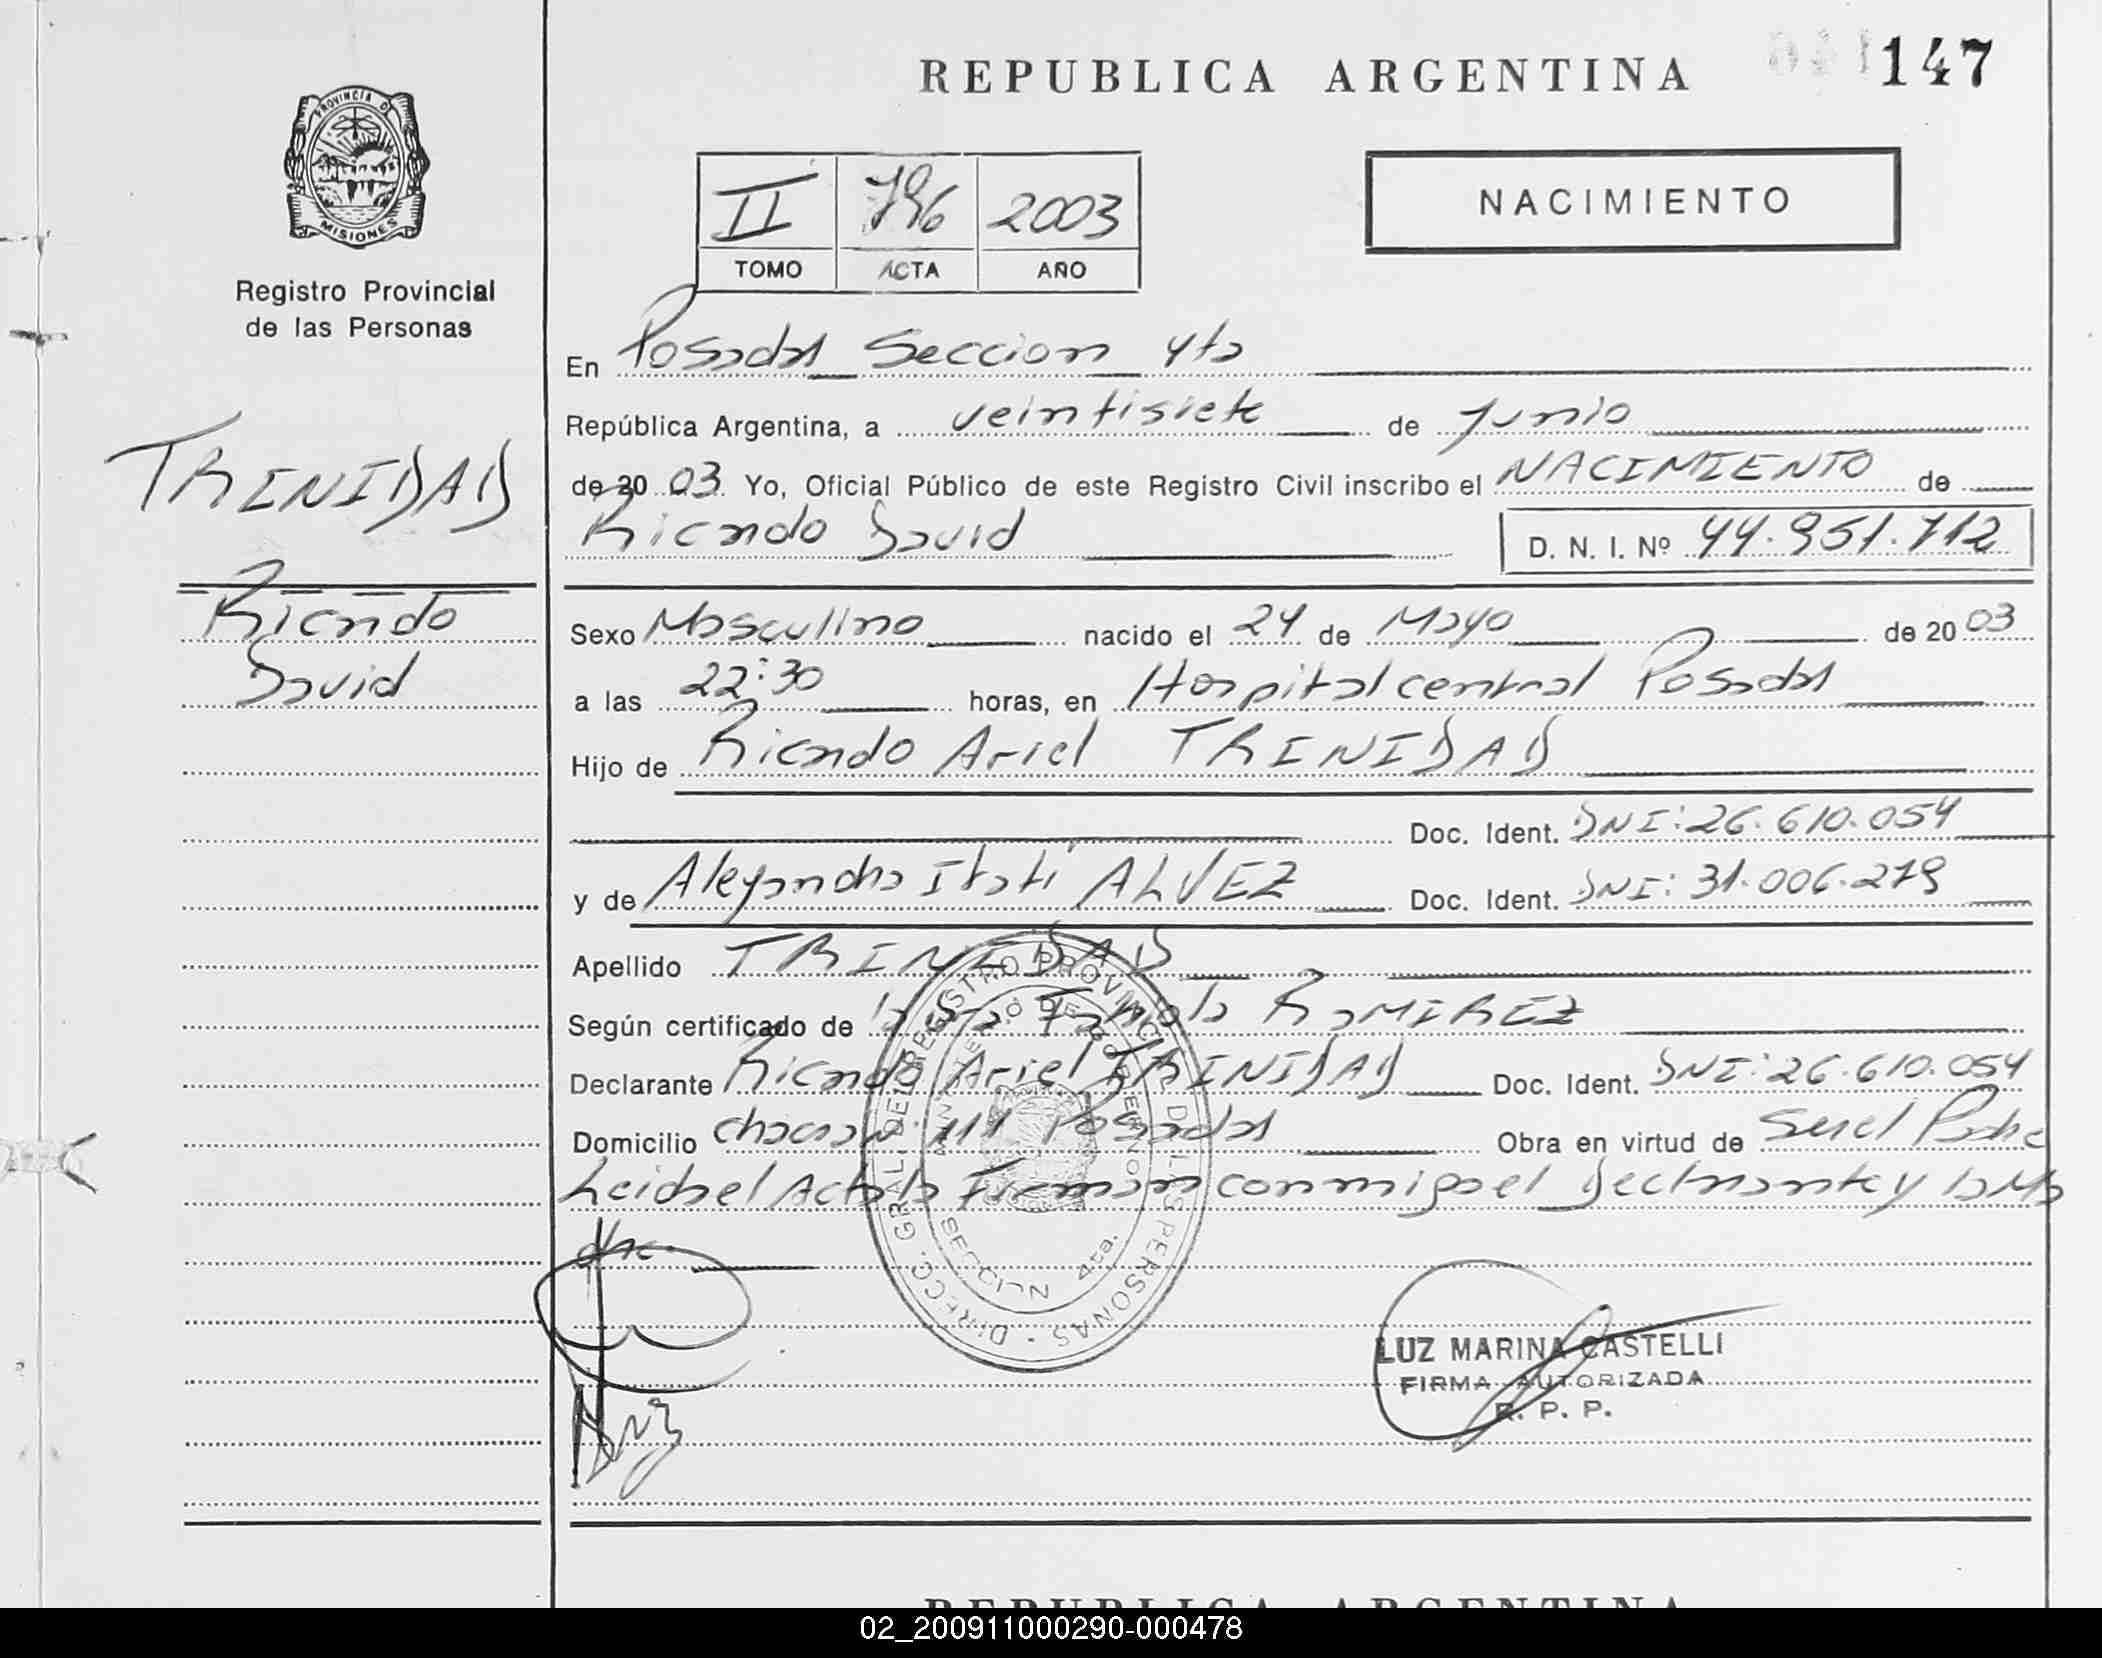 REPUBLICA ARGENTINA
147
PROVINCIA D
MISIONES
Registro Provincial
de las Personas
II 796 2003
TOMO ACTA AÑO
NACIMIENTO
En Posadas Seccion 4ta
República Argentina, a veintisiete de Junio
de 20 03. Yo, Oficial Público de este Registro Civil inscribo el NACIMIENTO de
Ricardo David D. N. I. Nº 44.951.712
TRINIDAD
Ricardo
David
Sexo Masculino nacido el 24 de Mayo de 20 03
a las 22:30 horas, en Hospital central Posadas
Hijo de Ricardo Ariel TRINIDAD
Doc. Ident. DNI: 26.610.054
y de Alejandra Itati ALVEZ Doc. Ident. DNI: 31.006.279
Apellido TRINIDAD
Según certificado de la Sra. Fabiola RAMIREZ
Declarante Ricardo Ariel TRINIDAD Doc. Ident. DNI: 26.610.054
Domicilio chacra 111 Posadas Obra en virtud de Ser el Padre
Leida el Acta la Firman conmigo el Declarante y la Ma
dre.
DIRECC. GRAL. DEL REGISTRO PROVINCIAL DE LAS PERSONAS
MINISTERIO DE GOBIERNO
SECCION 4ta.
LUZ MARINA CASTELLI
FIRMA AUTORIZADA
R. P. P.
REPUBLICA ARGENTINA
02_200911000290-000478